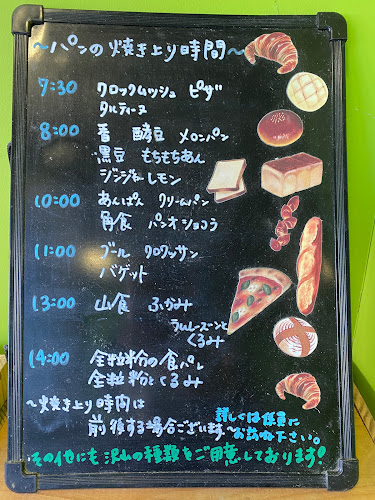 ～パンの焼き上り時間～
7:30 クロックムッシュ ピザ
タルティーヌ
8:00 香 酵豆 メロンパン
黒豆 もちもちあん
ジンジャーレモン
10:00 あんぱん クリームパン
角食 パンオショコラ
11:00 ブール クロワッサン
バゲット
13:00 山食 ふかみ
ラムレーズンと
くるみ
14:00 全粒粉の食パン
全粒粉とくるみ
～焼き上り時間は
前後する場合ございます～
詳しくは係員に
お訪ね下さい。
その他にも沢山の種類をご用意しております!